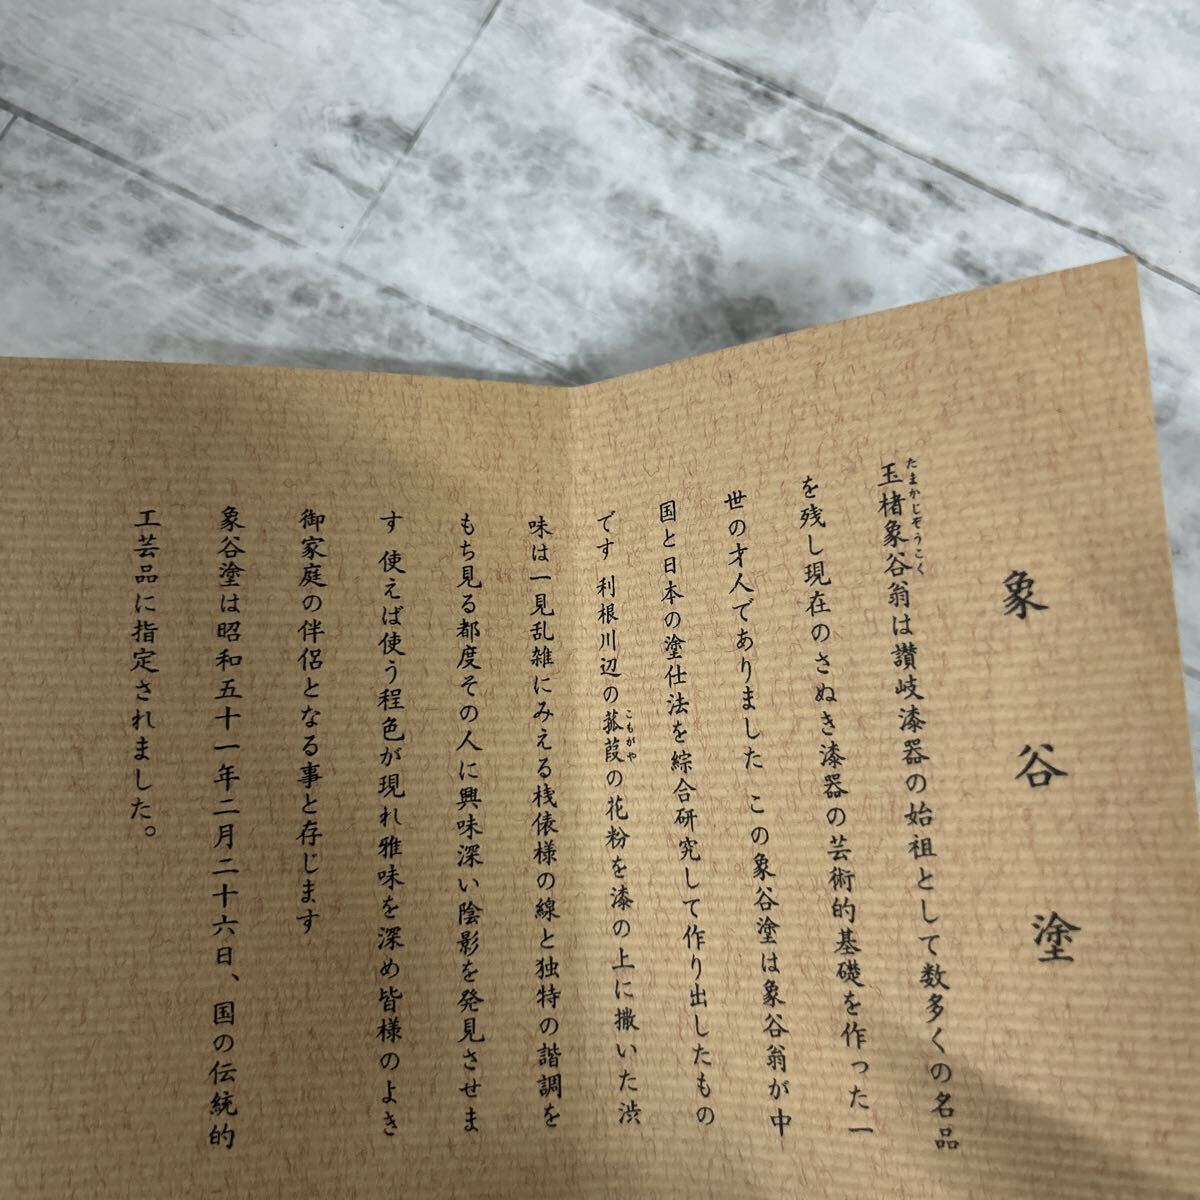 象谷塗
玉楮象谷翁は讃岐漆器の始祖として数多くの名品
たまかじぞうこく
を残し現在のさぬき漆器の芸術的基礎を作った一
世の才人でありました この象谷塗は象谷翁が中
国と日本の塗仕法を綜合研究して作り出したもの
です 利根川辺の菰葭の花粉を漆の上に撒いた渋
こもがや
味は一見乱雑にみえる桟俵様の線と独特の諧調を
もち見る都度その人に興味深い陰影を発見させま
す 使えば使う程色が現れ雅味を深め皆様のよき
御家庭の伴侶となる事と存じます
象谷塗は昭和五十一年二月二十六日、国の伝統的
工芸品に指定されました。